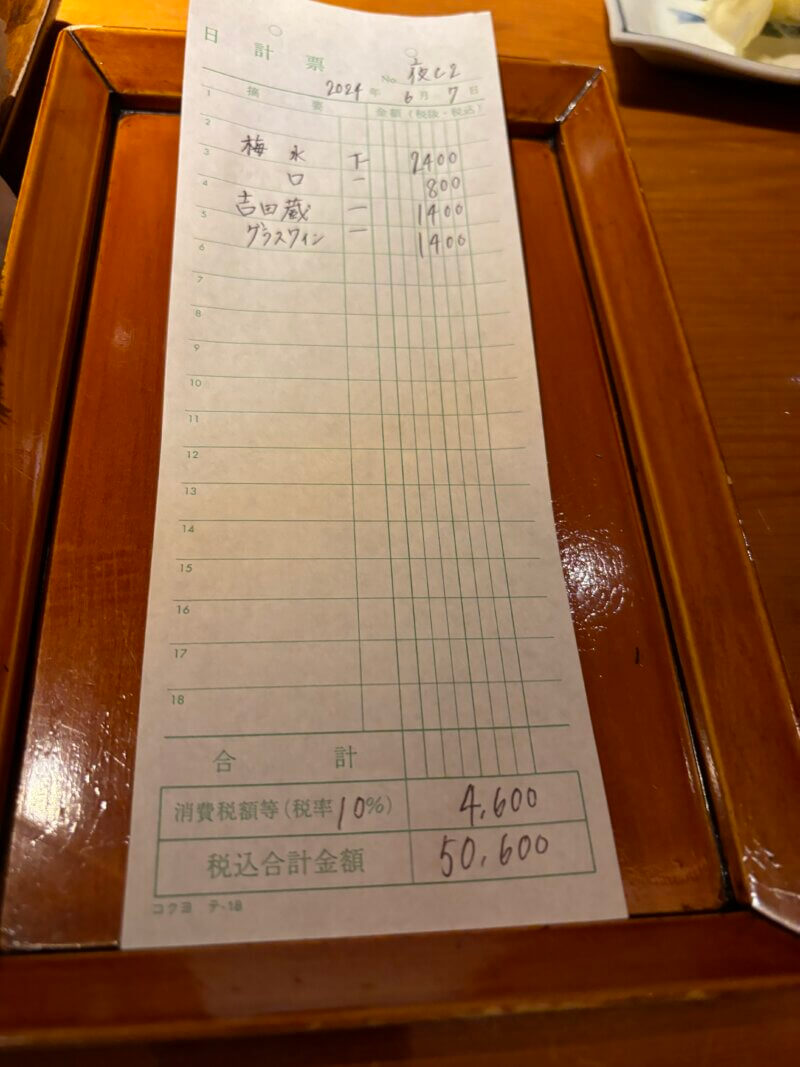 日 計 票
No. 夜C2
2024 年 6 月 7 日
1 摘 要 金額(税抜・税込)
2
3 梅 水 下 2400
4 口 一 800
5 吉田蔵 一 1400
6 グラスワイン 一 1400
7
8
9
10
11
12
13
14
15
16
17
18
合 計
消費税額等(税率10%) 4,600
税込合計金額 50,600
コクヨ テ-18